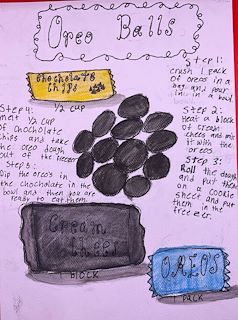 Oreo Balls
Chocholate
Chips
1/2 cup
Step 1:
crush 1 pack
of oreos in a
bag and pour
in in a bowl
Step 2:
Heat a block
of cream
cheese and mix
it with the
oreos
Step 3:
Roll the dough
and put them
on a cookie
sheet and put
them in the
freezer.
Step 4:
melt 1/2 cup
of chocholate
chips and take
the oreo dough
out of the freezer
Step 5:
Dip the oreo's in
the chocholate in the
bowl and then you are
ready to eat them.
Cream
chees
1 block
OREOS
1 pack